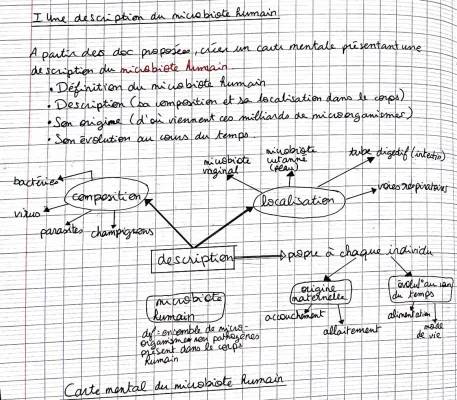 I Une description du microbiote humain
A partir des doc proposées, créer un carte mentale présentant une
description du microbiote humain.
• Définition du microbiote humain
• Description (sa composition et sa localisation dans le corps)
• Son origine (d'où viennent ces milliards de microorganismes)
• Son évolution au cours du temps.
microbiote
vaginal
microbiote
cutanné
(peau)
tube digestif (intestin)
voies respiratoires
bactéries
composition
localisation
virus
parasites
champignons
description
propre à chaque individu
microbiote
humain
def = ensemble de micro-
organismes non pathogènes
présent dans le corps
humain
origine
maternelle
évolut° au cours
du temps
accouchement
allaitement
alimentation
mode
de vie
Carte mental du microbiote humain